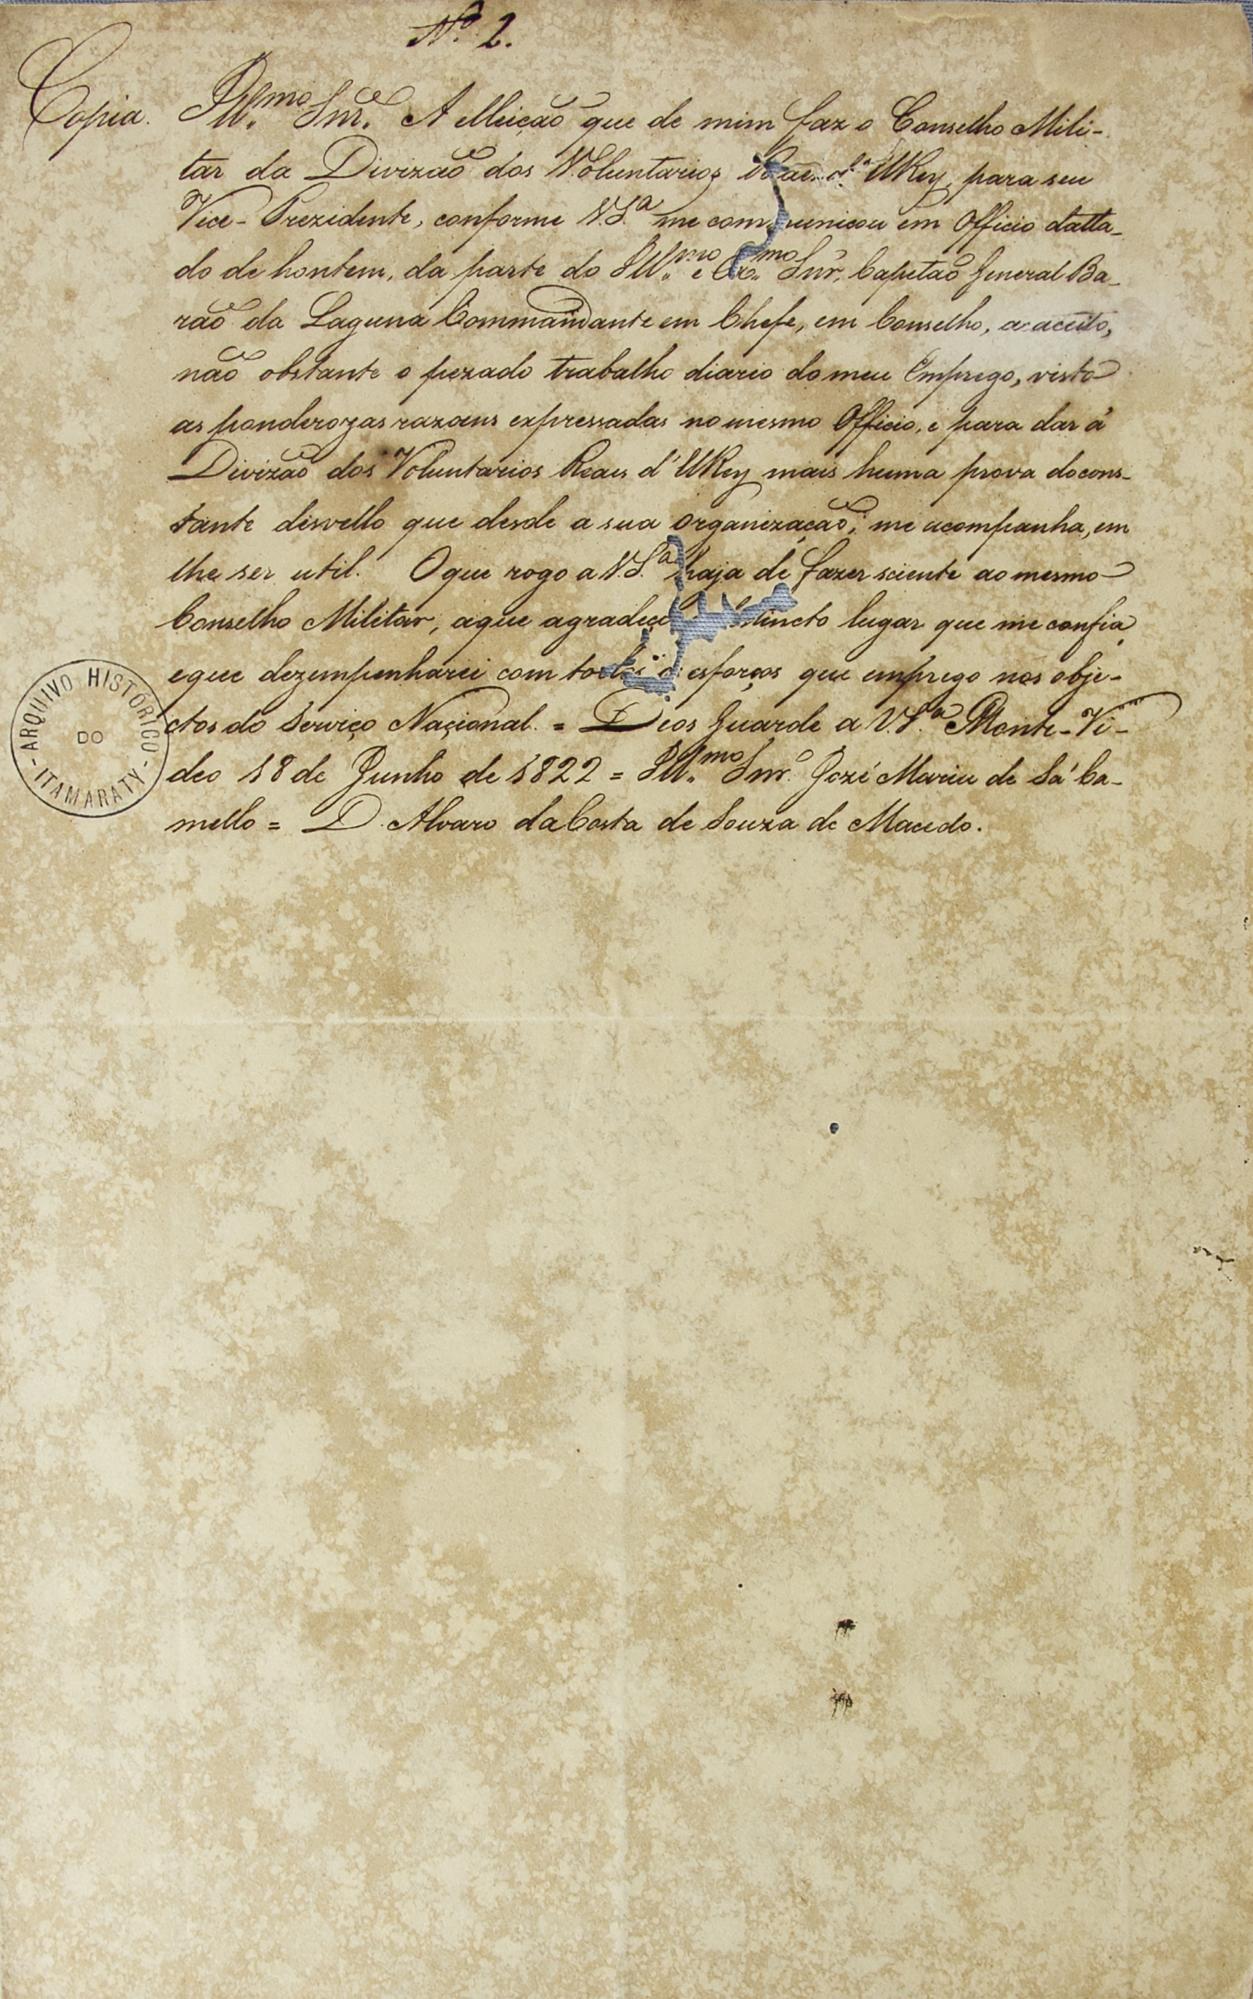 Nº 2.
Copia. Ill.mo Snr. A elleição que de mim faz o Conselho Mili-
tar da Divizão dos Voluntarios d'ElRey, para seu
Vice-Prezidente, conforme V.S.a me communicou em Officio datta-
do de hontem, da parte do Ill.mo e Ex.mo Snr. Capitão General Ba-
rão da Laguna Commandante em Chefe, em Conselho, a aceito,
não obstante o pezado trabalho diario do meu Emprego, visto
as ponderozas razoens expressadas no mesmo Officio, e para dar á
Divizão dos Voluntarios Reaes d'ElRey mais huma prova do cons-
tante disvello que desde a sua organização, me acompanha, em
lhe ser util. O que rogo a V.S.a haja de fazer sciente ao mesmo
Conselho Militar, a que agradeço lugar que me confia
e que dezempenharei com esforços que emprego nos obje-
ctos do Serviço Nacional. = Deos Guarde a V.S.a Monte-Vi-
deo 18 de Junho de 1822 = Ill.mo Snr. Jozé Maria de Sá Ca-
mello = D. Alvaro da Costa de Souza de Macedo.
ARQUIVO HISTÓRICO
DO
ITAMARATY